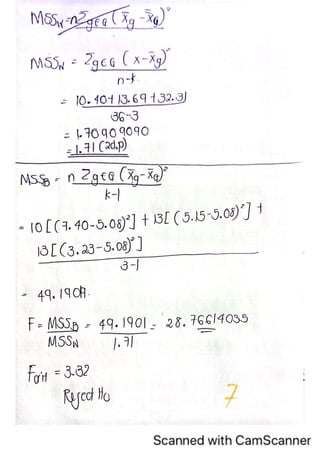 MSS_W = n Σg∈G (x̄g - x̄G)²
MSS_W = Σg∈G (x - x̄g)²
n-k
= 10.40+13.69+32.31
36-3
= 1.70909090
= 1.71 (2d.p)
MSS_B = n Σg∈G (x̄g - x̄G)²
k-1
= 10[(7.40-5.08)²] + 13[(5.15-5.08)²] +
13[(3.23-5.08)²]
3-1
= 49.1901.
F = MSS_B = 49.1901 = 28.76614035
MSS_W 1.71
Fcrit = 3.32
Reject H0
7
Scanned with CamScanner